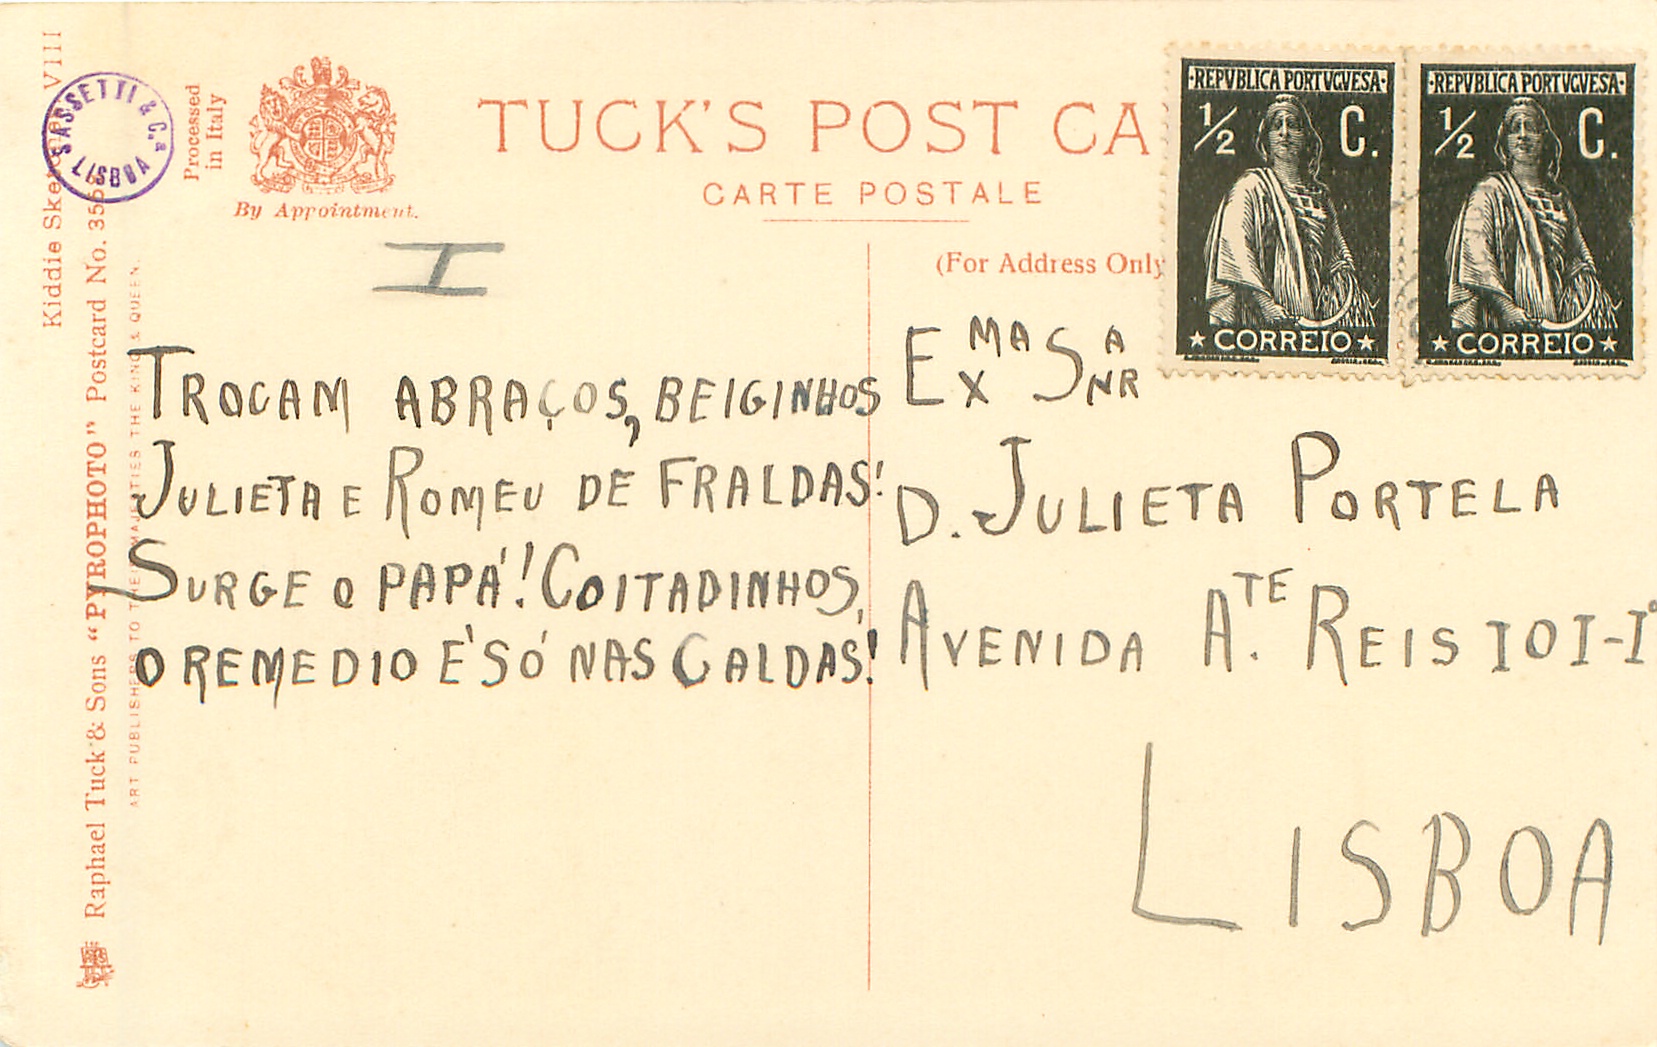 Kiddie
VIII
SASSETTI & Cª
LISBOA
Raphael Tuck & Sons "PYROPHOTO" Postcard No.
ART PUBLISHERS TO THEIR MAJESTIES THE KING & QUEEN.
Processed
in Italy
By Appointment.
TUCK'S POST CA
CARTE POSTALE
(For Address Only
·REPVBLICA PORTVGVESA·
½ C.
CORREIO
·REPVBLICA PORTVGVESA·
½ C.
CORREIO
I
TROCAM ABRAÇOS, BEIGINHOS
JULIETA E ROMEU DE FRALDAS!
SURGE O PAPÁ! COITADINHOS,
O REMEDIO É SÓ NAS CALDAS!
EXMA SNRA
D. JULIETA PORTELA
AVENIDA ATE. REIS 101-1º
LISBOA